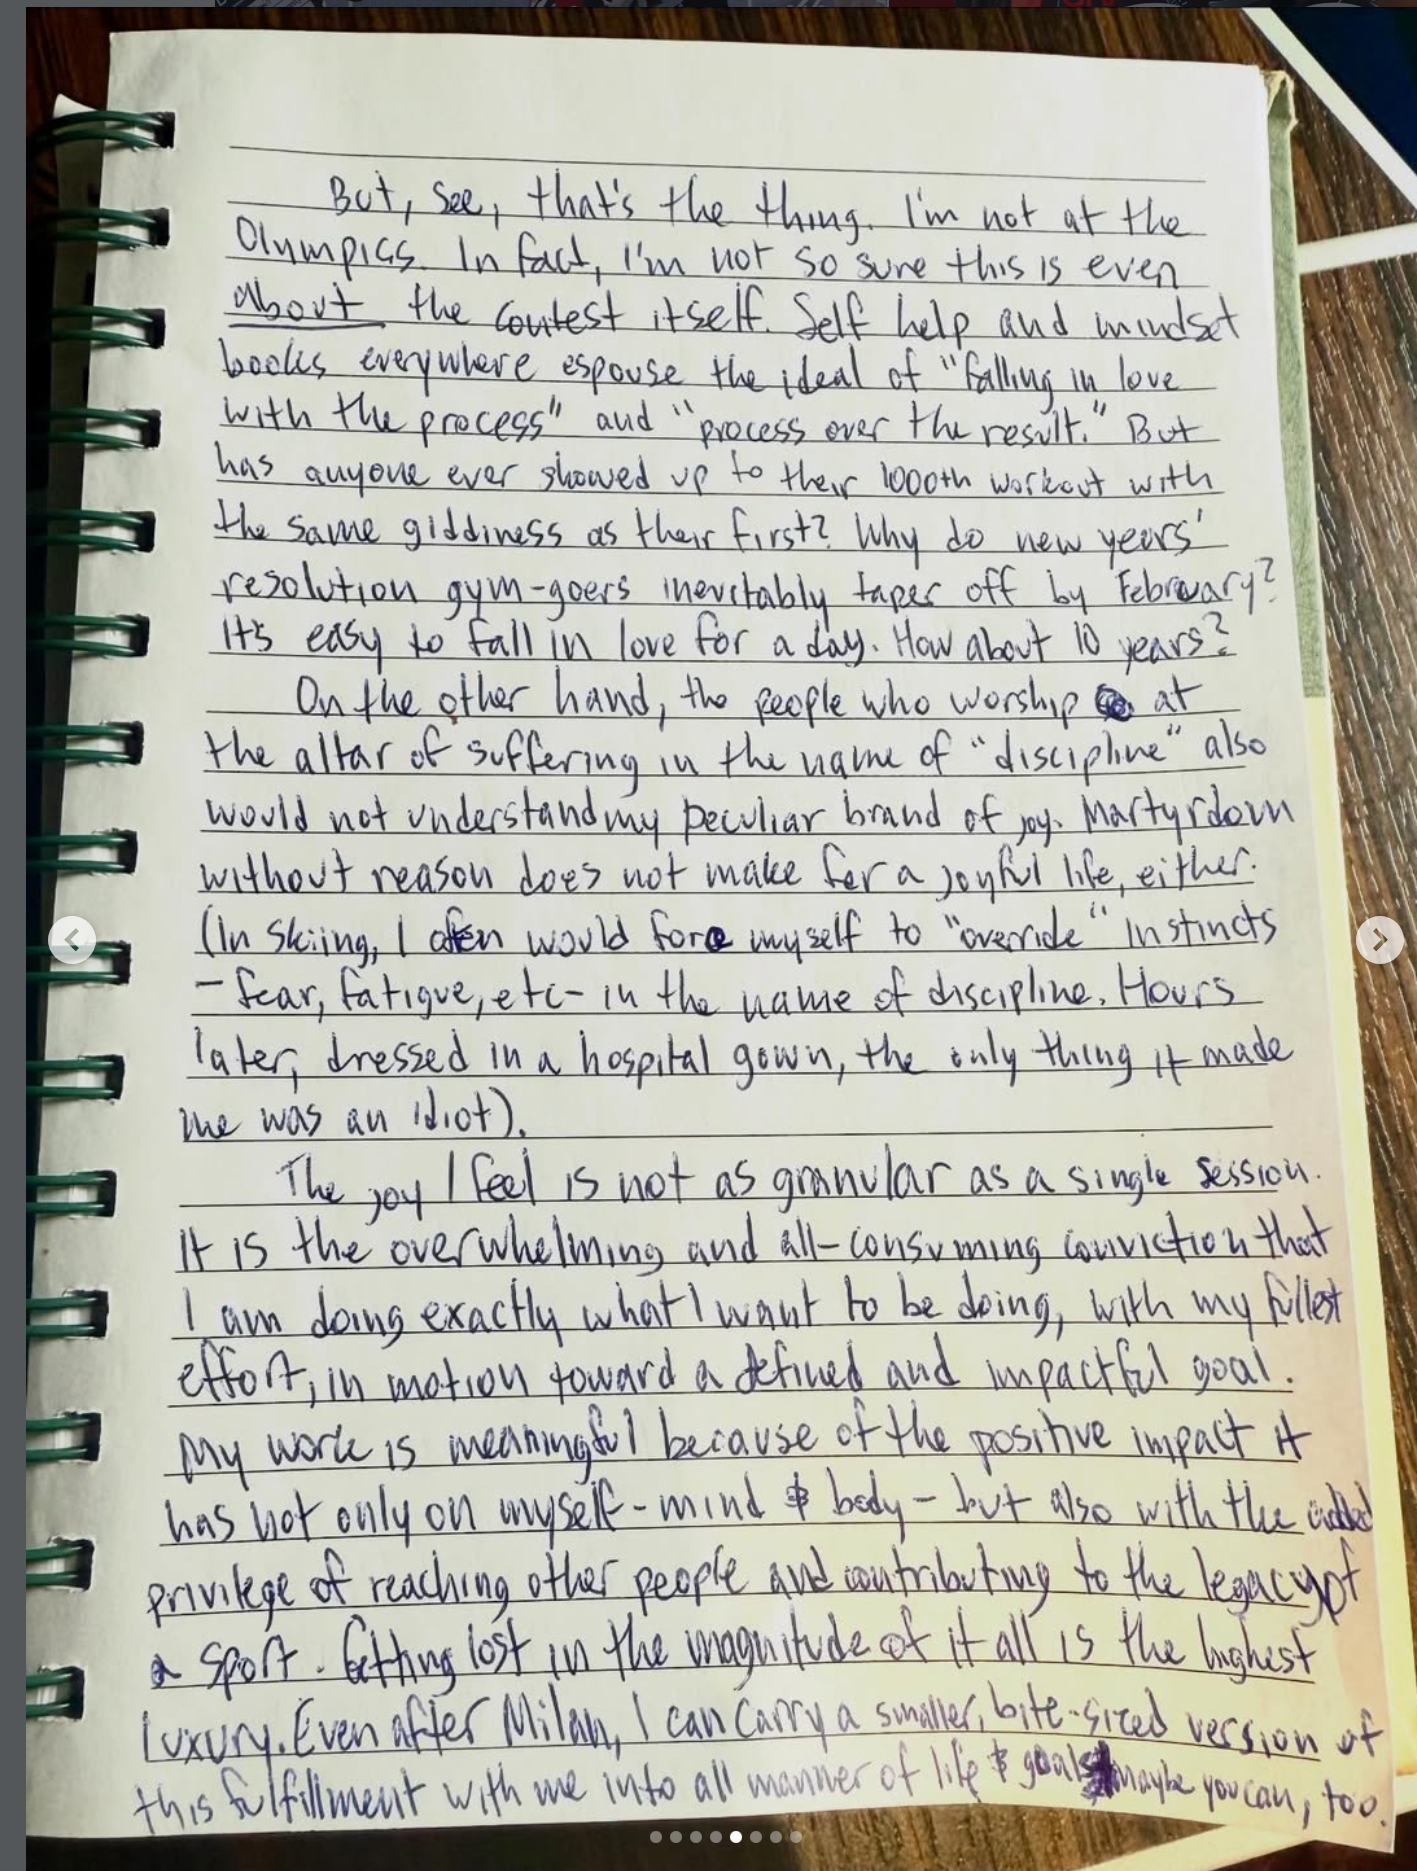 But, see, that's the thing. I'm not at the
Olympics. In fact, I'm not so sure this is even
about the contest itself. Self help and mindset
books everywhere espouse the ideal of "falling in love
with the process" and "process over the result." But
has anyone ever showed up to their 1000th workout with
the same giddiness as their first? Why do new years'
resolution gym-goers inevitably taper off by February?
It's easy to fall in love for a day. How about 10 years?
On the other hand, the people who worship at
the altar of suffering in the name of "discipline" also
would not understand my peculiar brand of joy. Martyrdom
without reason does not make for a joyful life, either.
(In skiing, I often would force myself to "override" instincts
- fear, fatigue, etc - in the name of discipline. Hours
later, dressed in a hospital gown, the only thing it made
me was an idiot).
The joy I feel is not as granular as a single session.
It is the overwhelming and all-consuming conviction that
I am doing exactly what I want to be doing, with my fullest
effort, in motion toward a defined and impactful goal.
My work is meaningful because of the positive impact it
has not only on myself - mind & body - but also with the added
privilege of reaching other people and contributing to the legacy of
a sport. Getting lost in the magnitude of it all is the highest
luxury. Even after Milan, I can carry a smaller, bite-sized version of
this fulfillment with me into all manner of life & goals maybe you can, too.